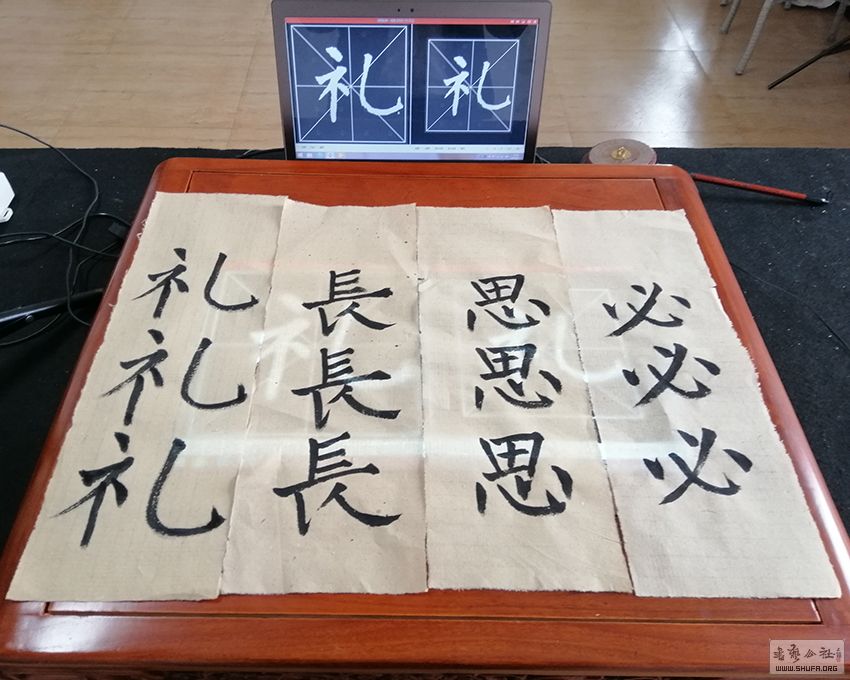 礼 礼
礼 長 思 必
礼 長 思 必
礼 長 思 必
WWW.SHUFA.ORG